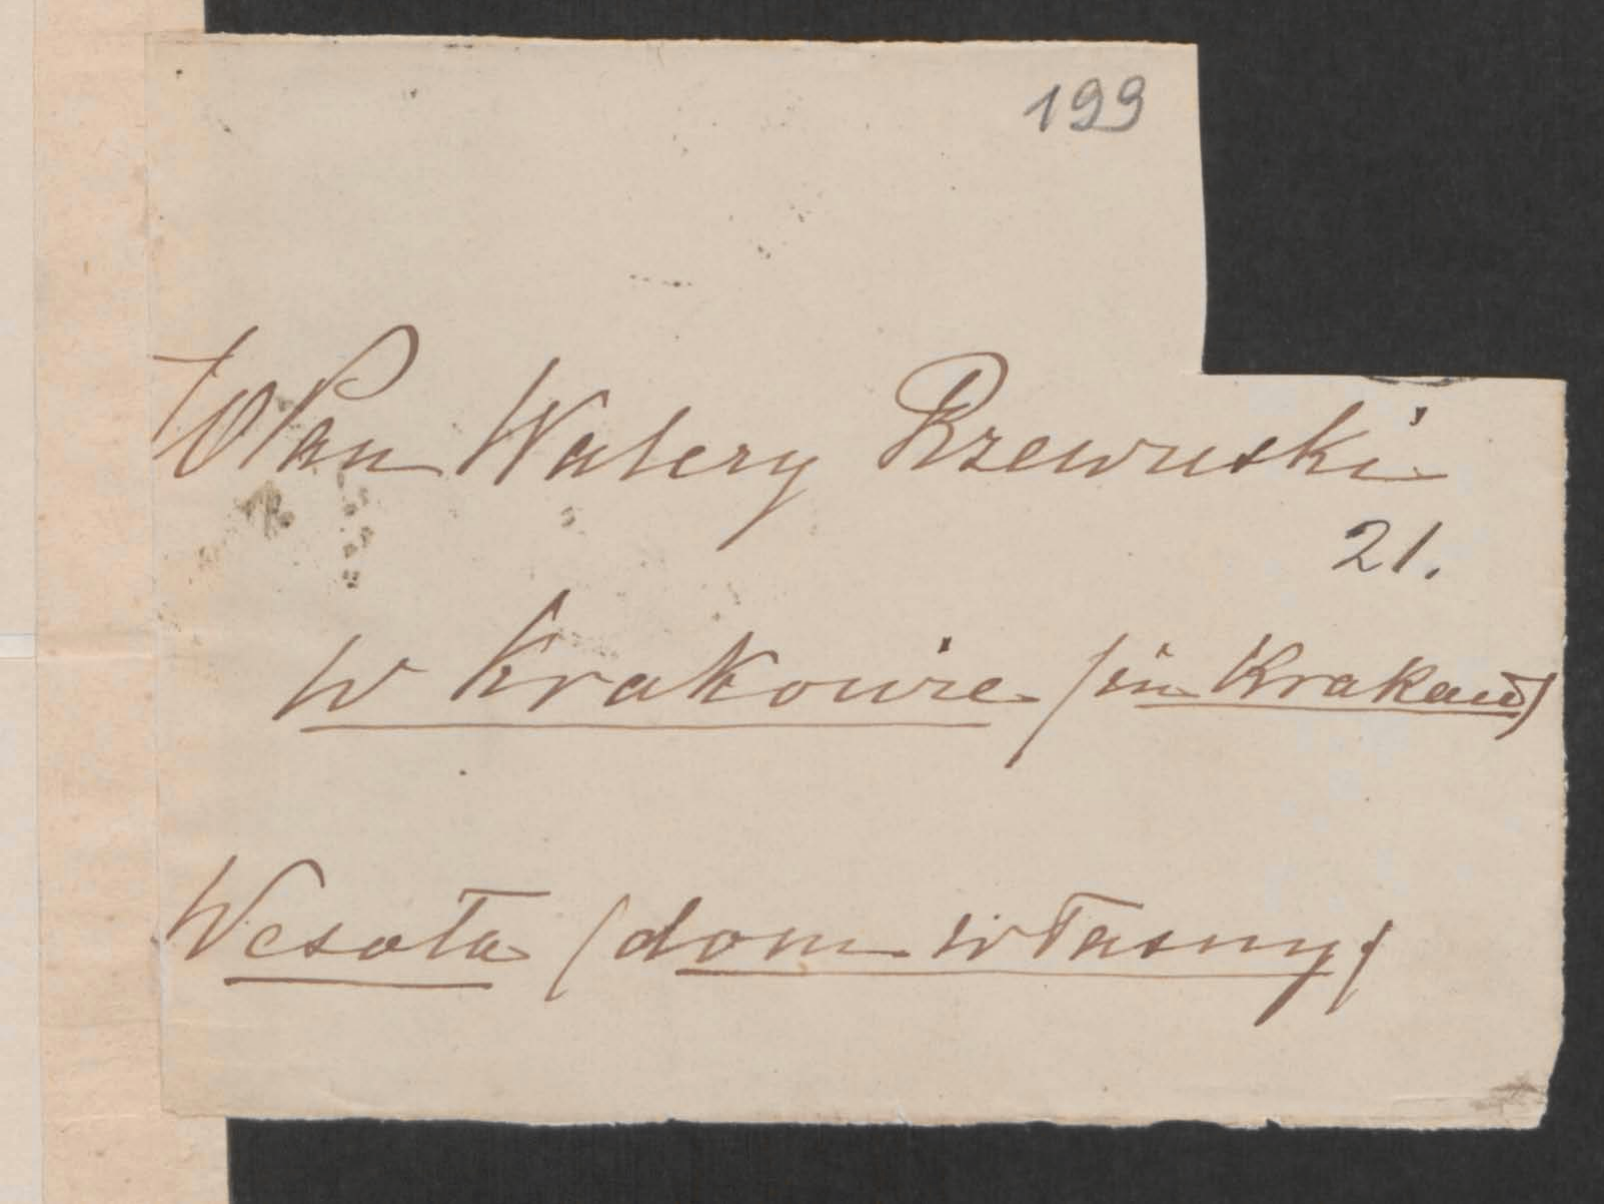 199
WPan Walery Rzewuski
21.
w Krakowie /in Krakau/
Wesoła /dom własny/